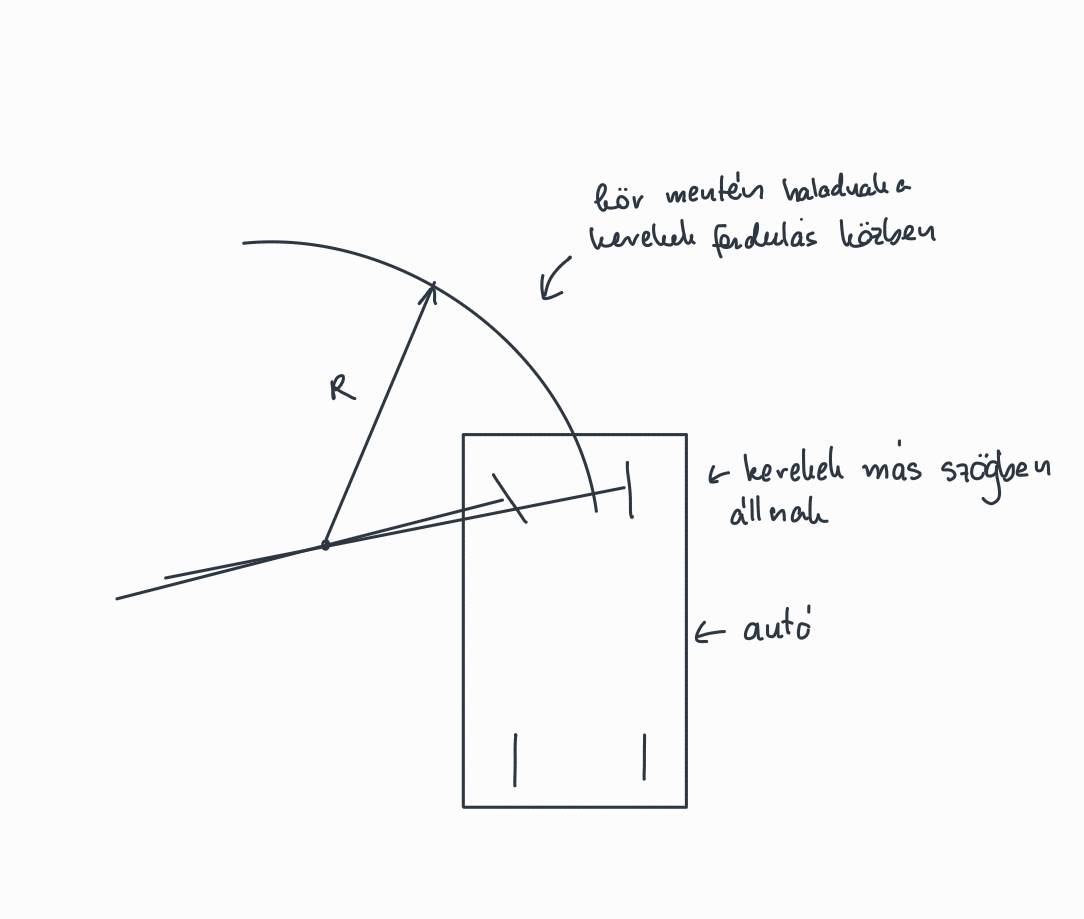 kör mentén haladnak a
kerekek fordulás közben
R
← kerekek más szögben
állnak
← autó